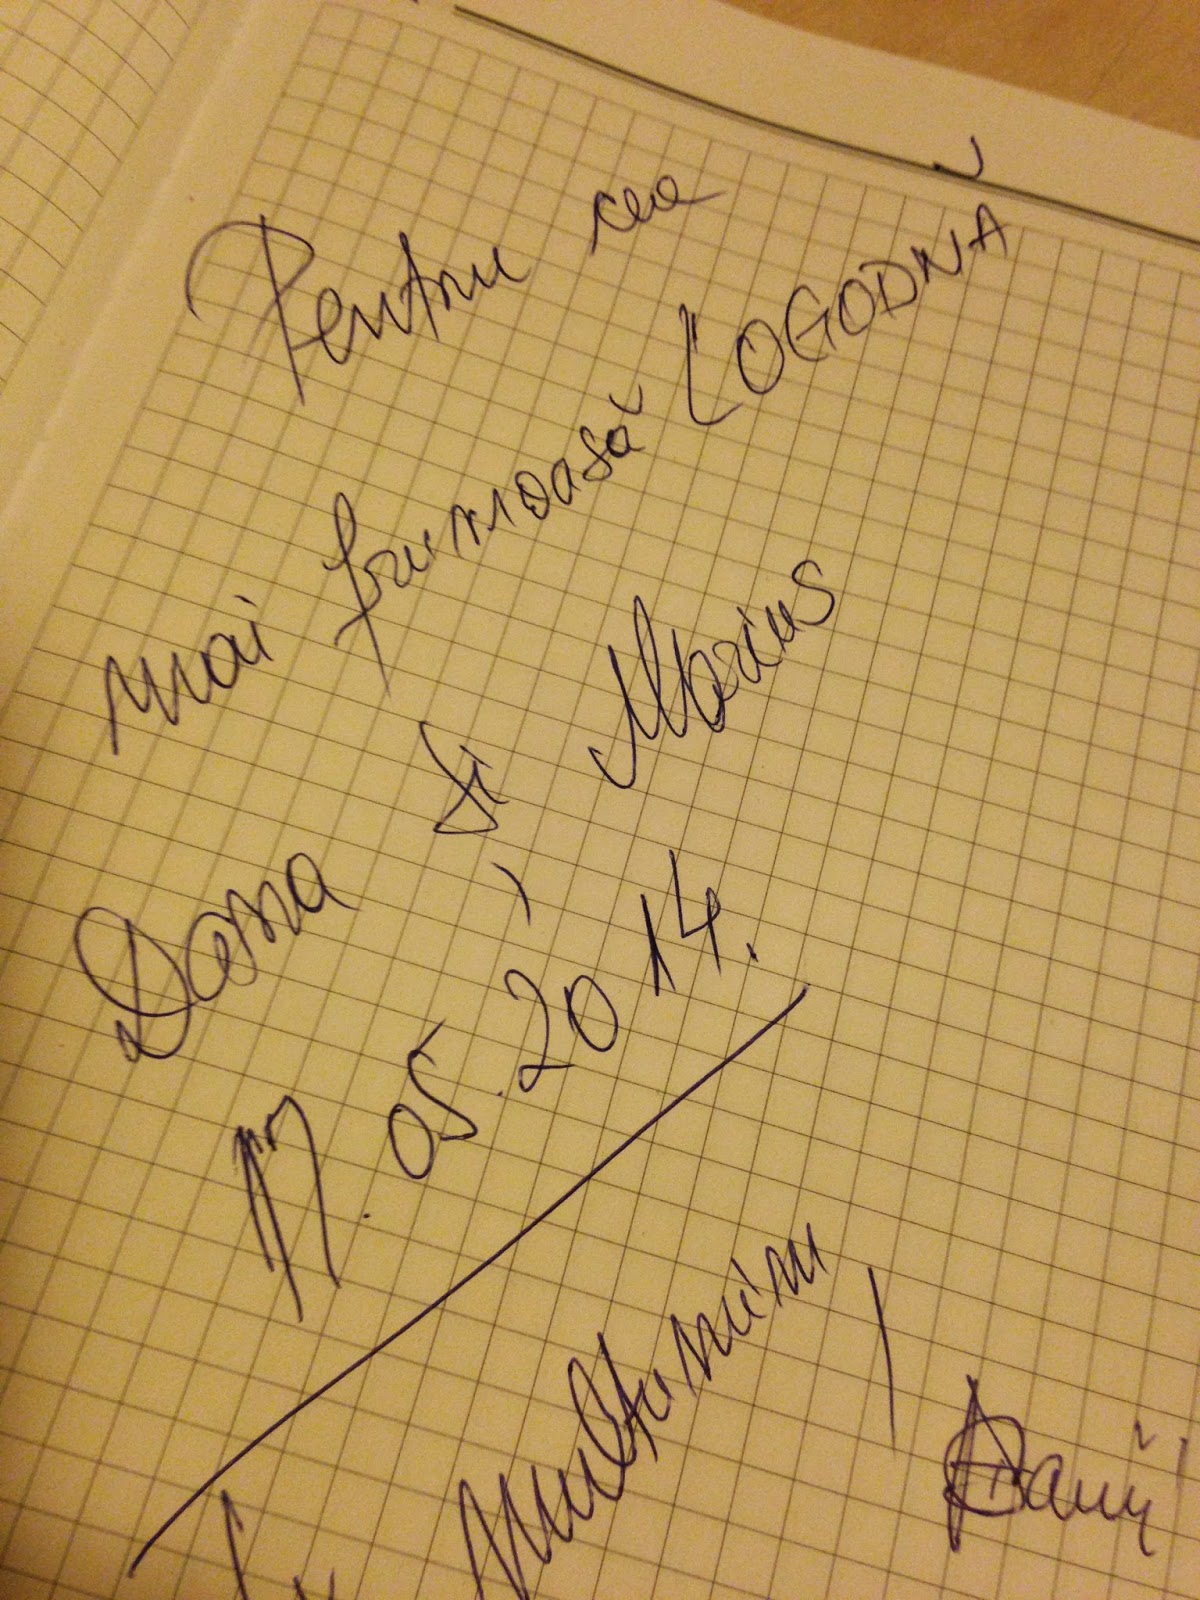 Pentru cea
mai frumoasă LOGODNĂ
Dana și Marius
17.05.2014.
Mulțumim,